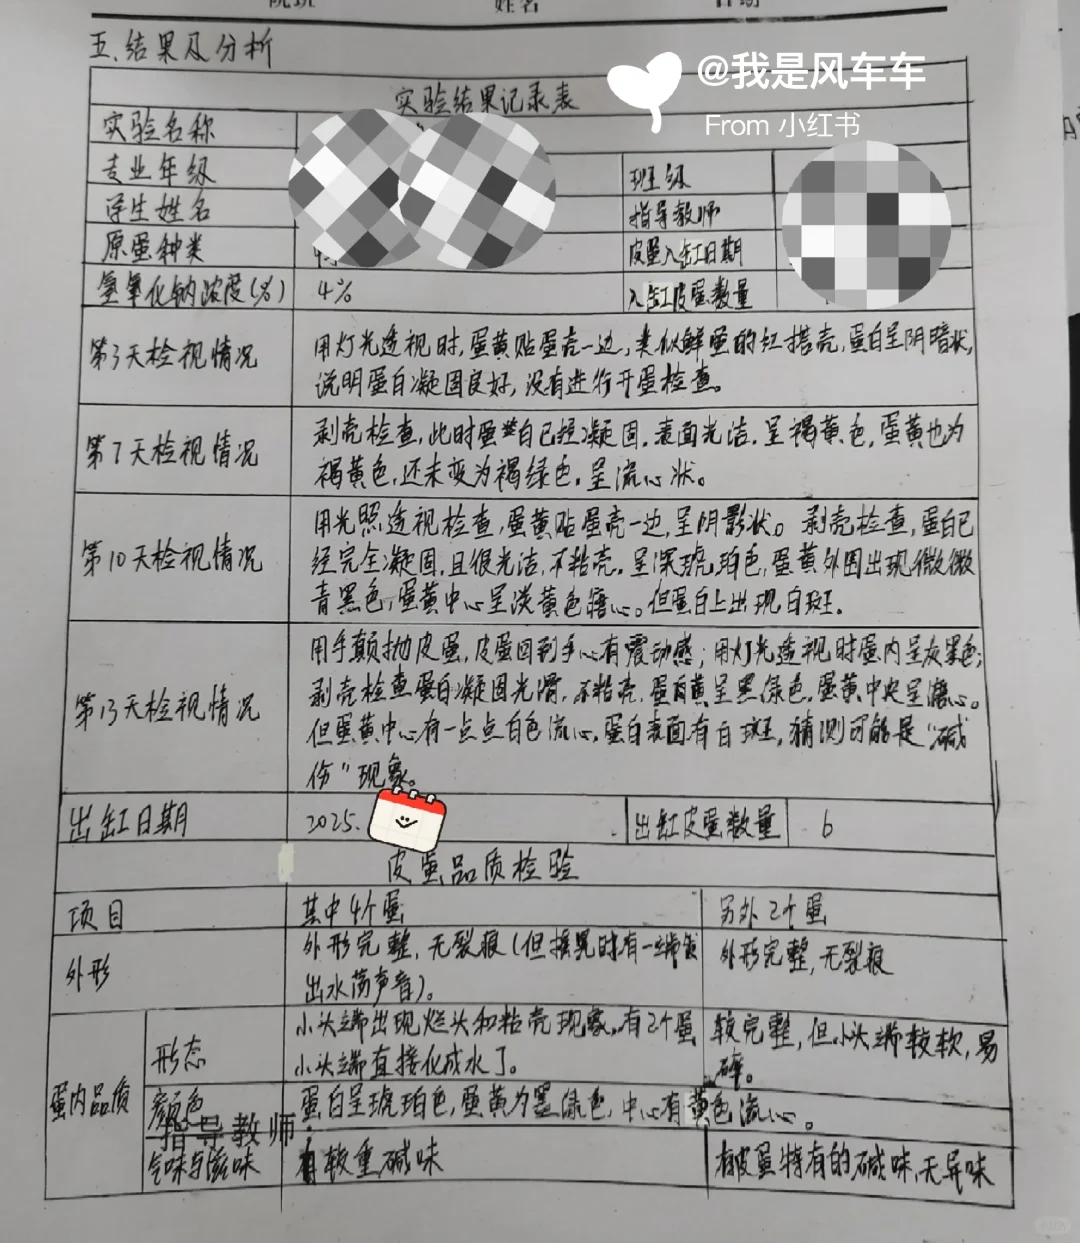 院班 姓名 日期
五、结果及分析
@我是风车车
From 小红书
实验结果记录表
实验名称
专业年级 班级
学生姓名 指导教师
原蛋种类 皮蛋入缸日期
氢氧化钠浓度(%) 4% 入缸皮蛋数量
第3天检视情况
用灯光透视时,蛋黄贴蛋壳一边,类似鲜蛋的红搭壳,蛋白呈阴暗状,
说明蛋白凝固良好,没有进行开蛋检查。
第7天检视情况
剥壳检查,此时蛋白已经凝固,表面光洁,呈褐黄色,蛋黄也为
褐黄色,还未变为褐绿色,呈流心状。
第10天检视情况
用光照透视检查,蛋黄贴蛋壳一边,呈阴影状。剥壳检查,蛋白已
经完全凝固,且很光洁,不粘壳,呈深琥珀色,蛋黄外围出现微微
青黑色,蛋黄中心呈淡黄色溏心。但蛋白上出现白斑.
第13天检视情况
用手颠抛皮蛋,皮蛋回到手心有震动感;用灯光透视时蛋内呈灰黑色;
剥壳检查蛋白凝固光滑,不粘壳,蛋黄呈墨绿色,蛋黄中央呈溏心。
但蛋黄中心有一点点白色流心,蛋白表面有白斑,猜测可能是“碱
伤”现象。
出缸日期 2025. 出缸皮蛋数量 6
皮蛋品质检验
项目 其中4个蛋 另外2个蛋
外形
外形完整,无裂痕(但摇晃时有一端发
出水荡声音)。
外形完整,无裂痕
蛋内品质
形态
小头端出现烂头和粘壳现象,有2个蛋
小头端直接化成水了。
较完整,但小头端较软,易
碎。
颜色
蛋白呈琥珀色,蛋黄为墨绿色,中心有黄色流心。
指导教师:
气味与滋味 有较重碱味 有皮蛋特有的碱味,无异味